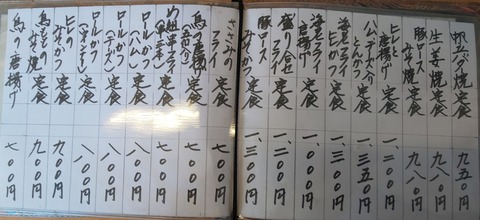 帆立バタ焼定食 九五〇円
生姜焼定食 九八〇円
豚ロースみそ焼定食 九八〇円
ヒレと唐揚げ定食 一、二〇〇円
ハム、チーズ入りとんかつ定食 一、三五〇円
海老フライヒレかつ定食 一、三〇〇円
海老と唐揚げ定食 一、〇〇〇円
盛り合せフライ定食 一、〇〇〇円
豚ロースみそかつ定食 一、三〇〇円
ささみのフライ定食 七〇〇円
鳥の唐揚げ定食 七〇〇円
定食 七〇〇円
ロールかつ(ハム)定食 八〇〇円
ロールかつ(チーズ)定食 八〇〇円
ロールかつ定食 八〇〇円
ヒレみそかつ定食 九〇〇円
鳥ももみそ焼定食 九〇〇円
鳥の唐揚げ定食 七〇〇円